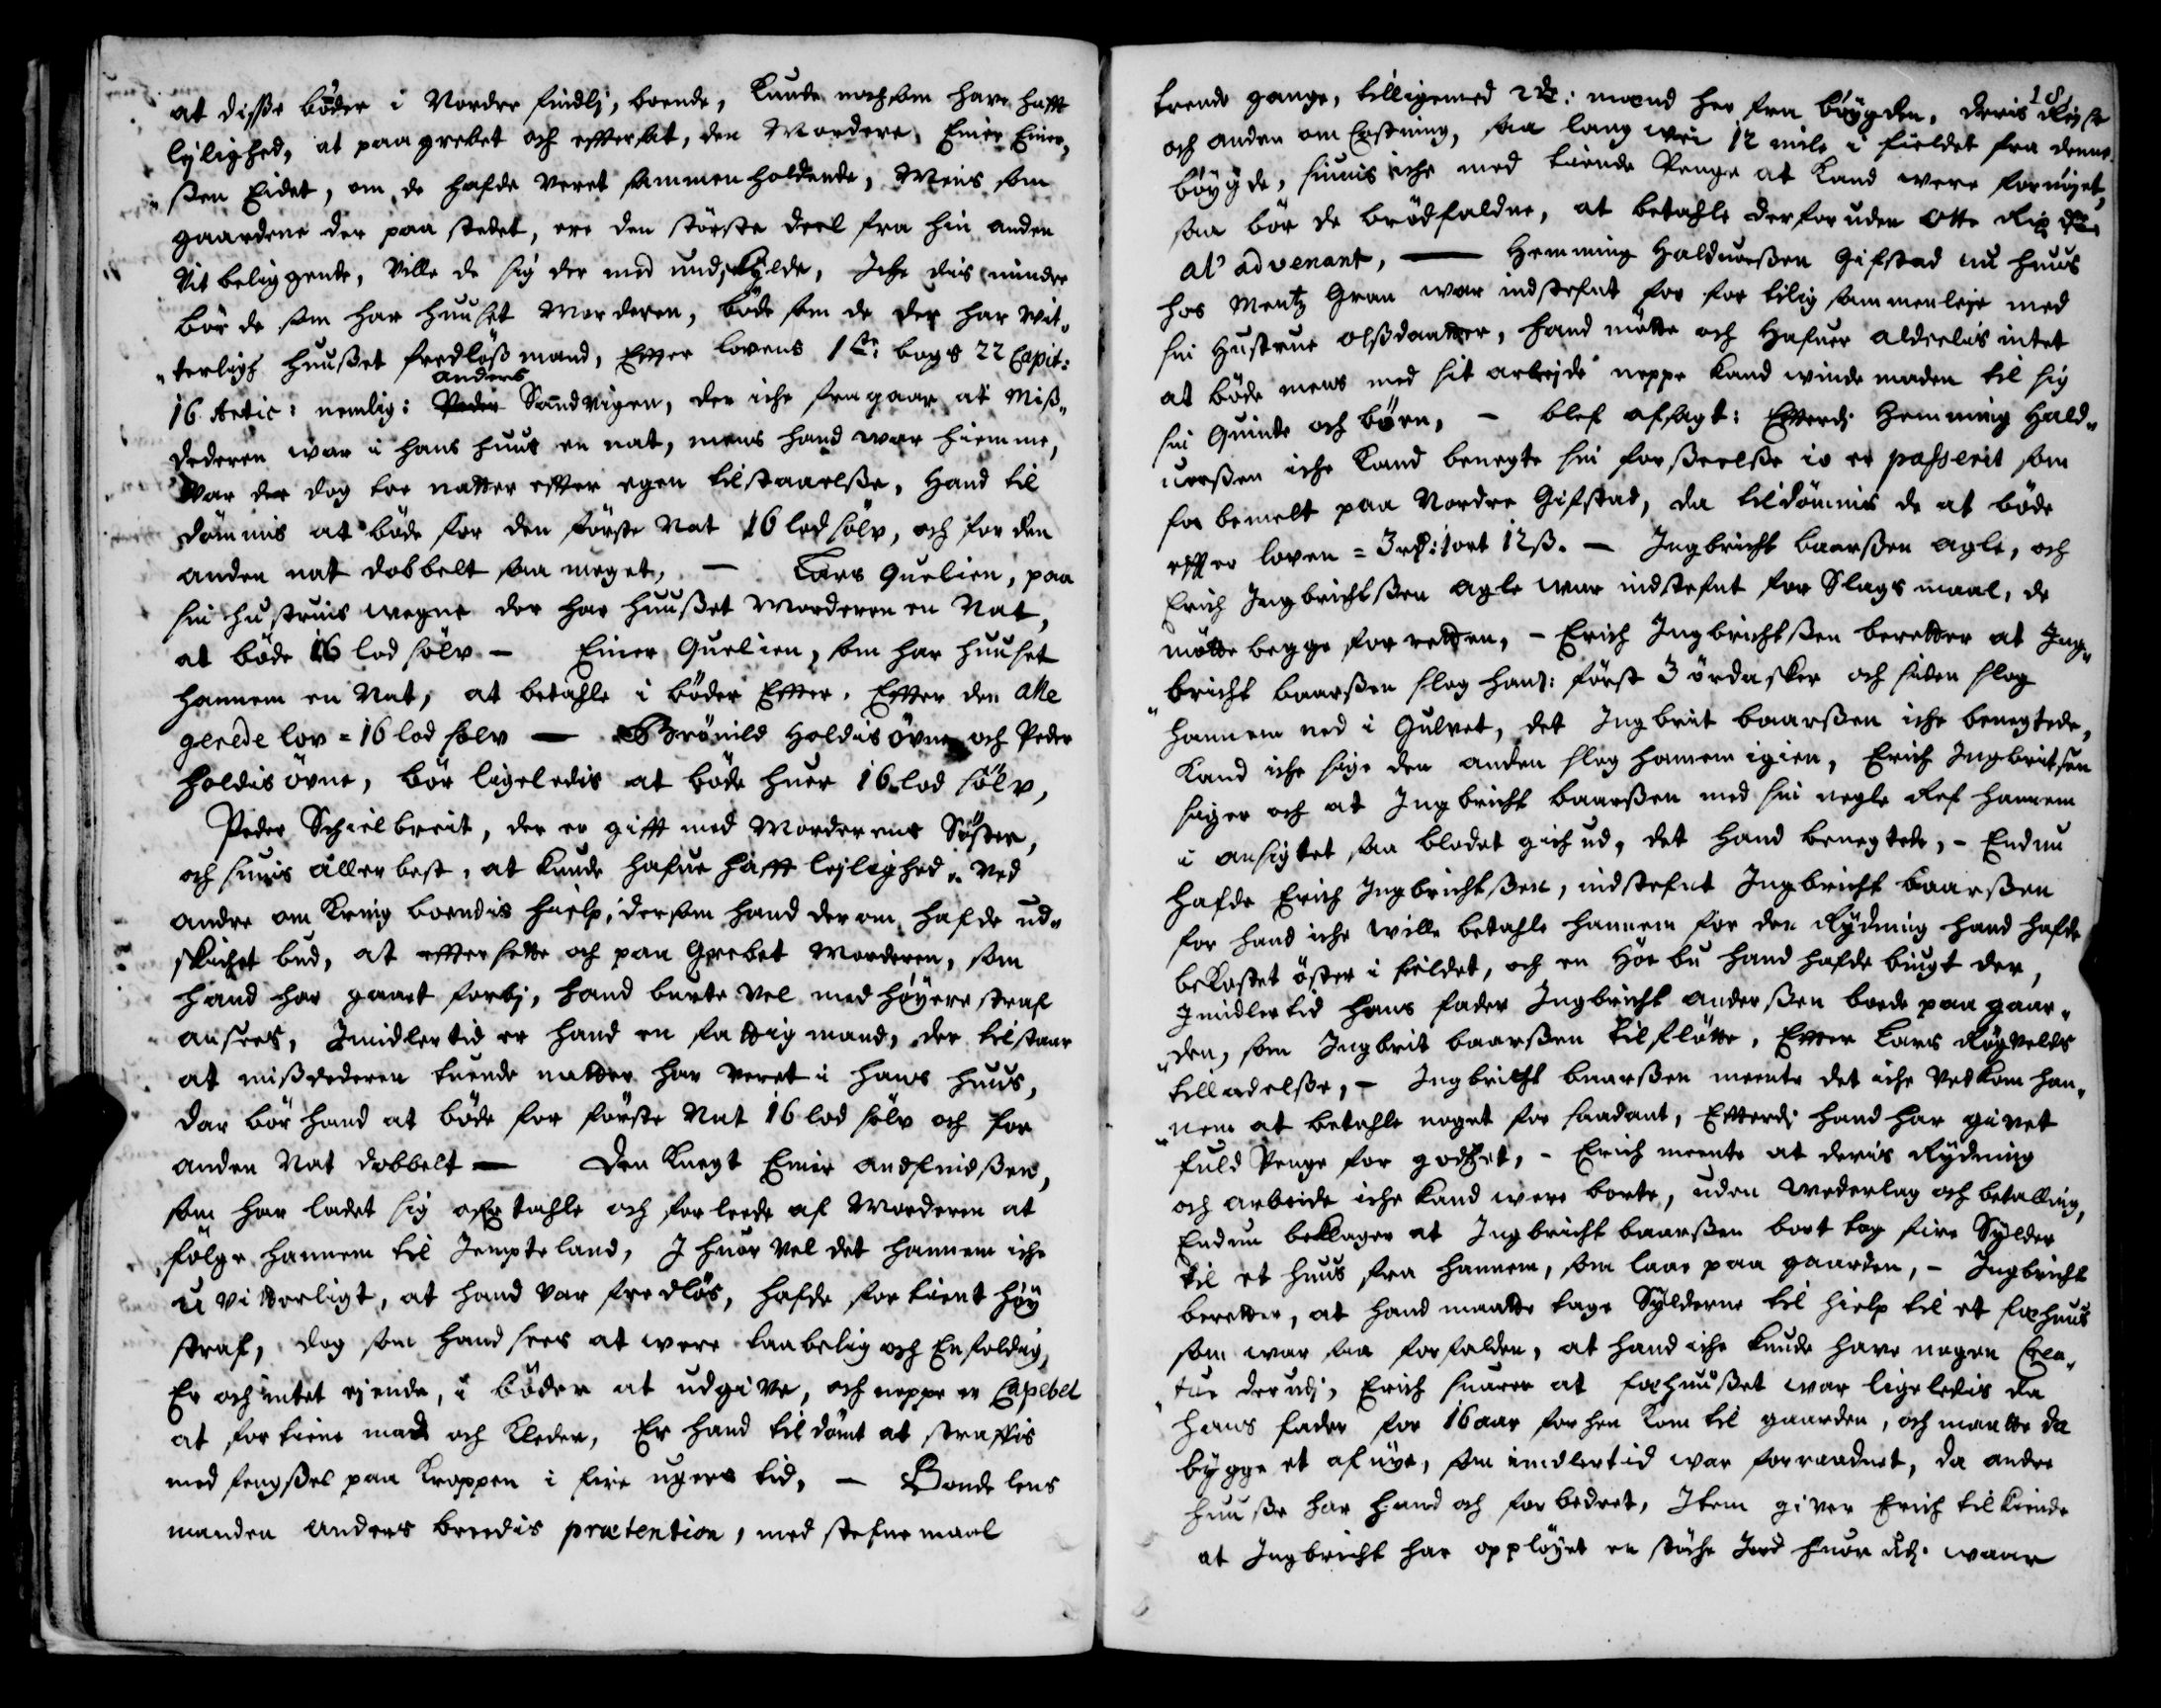 at disse böder i Nordre findlj, boende, kunde noch som have hafft
lejlighed, at paagrebet och effterfat, den Mordere, Einer Einer„
„ßen Eidet, om de hafde veret sammenholdende, Mens som
gaardene der paa stedet, ere den störste deel fra hin anden
vit beliggende, ville de sig der med undskylde, Iche dis mindre
bör de som har huuset Morderen, böde som de der har vit„
„terligh huußet fredlöß mand, Effter lovens 1te bogs 22 Capit:
16 Artic: nemlig: Anders Sandvigen, der iche fragaar at miß„
dederen var i hans huus en nat, mens hand var hiemme,
Var der dog toe natter effter egen tilstaaelße, Hand til
dömmis at böde for den förste Nat 16 lod sölv, och for den
anden nat dobbelt saa meget, — Lars Quelien, paa
sin hustruis vegne der har huußet Morderen en Nat,
at böde 16 lod sölv — Einer Quelien, som har huuset
hannem en Nat, at betahle i böder Effter, Effter den alle
gerede lov = 16 lod sölv — Brönild Holdisövne och Peder
holdisövne, bör ligeledis at böde huer 16 lod sölv,
Peder Schielbreit, der er gifft med Morderens Söster,
och siunis aller best, at kunde hafue hafft lejlighed, ved
andre om kring boendis hielp, dersom hand der om hafde ud„
skichet bud, at efftersette och paa Grebet Morderen, som
hand har gaaet forbj, hand burte vel med höyere straf
ansees, Imidlertid er hand en fattig mand, der tilstaar
at mißdederen tuende natter har veret i hans huus,
dar bör hand at böde for förste Nat 16 lod sölv och for
anden Nat dobbelt — Den Knegt Einer Andfindßen,
som har ladet sig ofertahle och forleede af Morderen at
fölge hannem til Jempteland, I huor vel det hannem iche
u vitterligt, at hand var fredlös, hafde fortient höy
straf, dog som hand sees at were taabelig och Enfoldig,
Er och intet ejende, i böder at udgive, och neppe er Capebel
at fortiene mad och Kleder, Er hand tildömt at straffis
med fengßel paa Kroppen i fire ugers tid, — Bonde lens
manden Anders breedis prætention, med stefnemaal
18
trende gange, tilligemed 2de: mænd her fra böygden, deris Rejse
och anden om Costning, saa lang vei 12 mile i fieldet fra denne
böygde, siunis iche med tiende Penge at kand were fornöyet,
saa bör de brödfaldne, at betahle der foruden Otte Rix dr.
al' advenant, — Hemming Halduorßen Gifstad nu huus
hos Mentz Gran war indstefnt for for tilig sammenleje med
sin Hustrue olßdaatter, hand mötte och hafuer alderelis intet
at böde mens med sit arbejde neppe kand winde maden til sig
sin Quinde och börn, — blef afsagt: Efterdj Hemming Hald„
uorßen iche kand benegte sin forßeelße io er passerit som
forbemelt paa Nordre Gifstad, da tildömmis de at böde
effter loven = 3 rd: 1 ort 12 ß. — Ingbricht Baarßen Agle, och
Erich Ingbrichtßen Agle war indstefnt for Slagsmaal, de
mötte begge for retten, — Erich Ingbrichtßen beretter at Ing„
„bricht baarßen slog hand: först 3 ördasker och siden slog
hannem ned i Gulvet, det Ingbrit baarßen iche benegtede,
kand iche sige den anden slog hannem igien, Erich Ingbritsen
siger och at Ingbricht baarßen med sin negle Ref hannem
i ansigtet saa blodet gich ud, det hand benegtede, — Endnu
hafde Erich Ingbrichtßen, indstefnt Ingbricht baarßen
for hand iche wille betahle hannem for den Rydning hand hafde
bekostet öster i fieldet, och en Höe bu hand hafde biugt der,
Imidlertid hans fader Ingbricht anderßen boede paa gaar„
„den, som Ingbrit baarßen tilflötte, Effter Lars Röysvelds
tilladelße, — Ingbricht baarßen meente det iche vedkom han„
„nem at betahle noget for saadant, Efterdj hand har givet
fuld Penge for godßet, — Erich meente at deris Rydning
och arbeide iche kand were borte, uden wederlag och betalling,
Endnu beklager at Ingbricht baarßen bort tog fire Sylder
til et huus fra hannem, som laae paa gaarden, — Ingbricht
beretter, at hand maatte tage Sylderne til hielp til et fæhuus
som war saa forfalden, at hand iche kunde have nogen Crea„
„tur derudj, Erich suarer at fæhuußet war ligeledis da
hans fader for 16 aar forhen kom til gaarden, och maatte da
bygge et af nye, som imidlertid war forraadnet, da andre
huuße har hand och forbedret, Item giver Erich tilkiende
at Ingbricht har opplöyet en stöche Jord huor udj waar